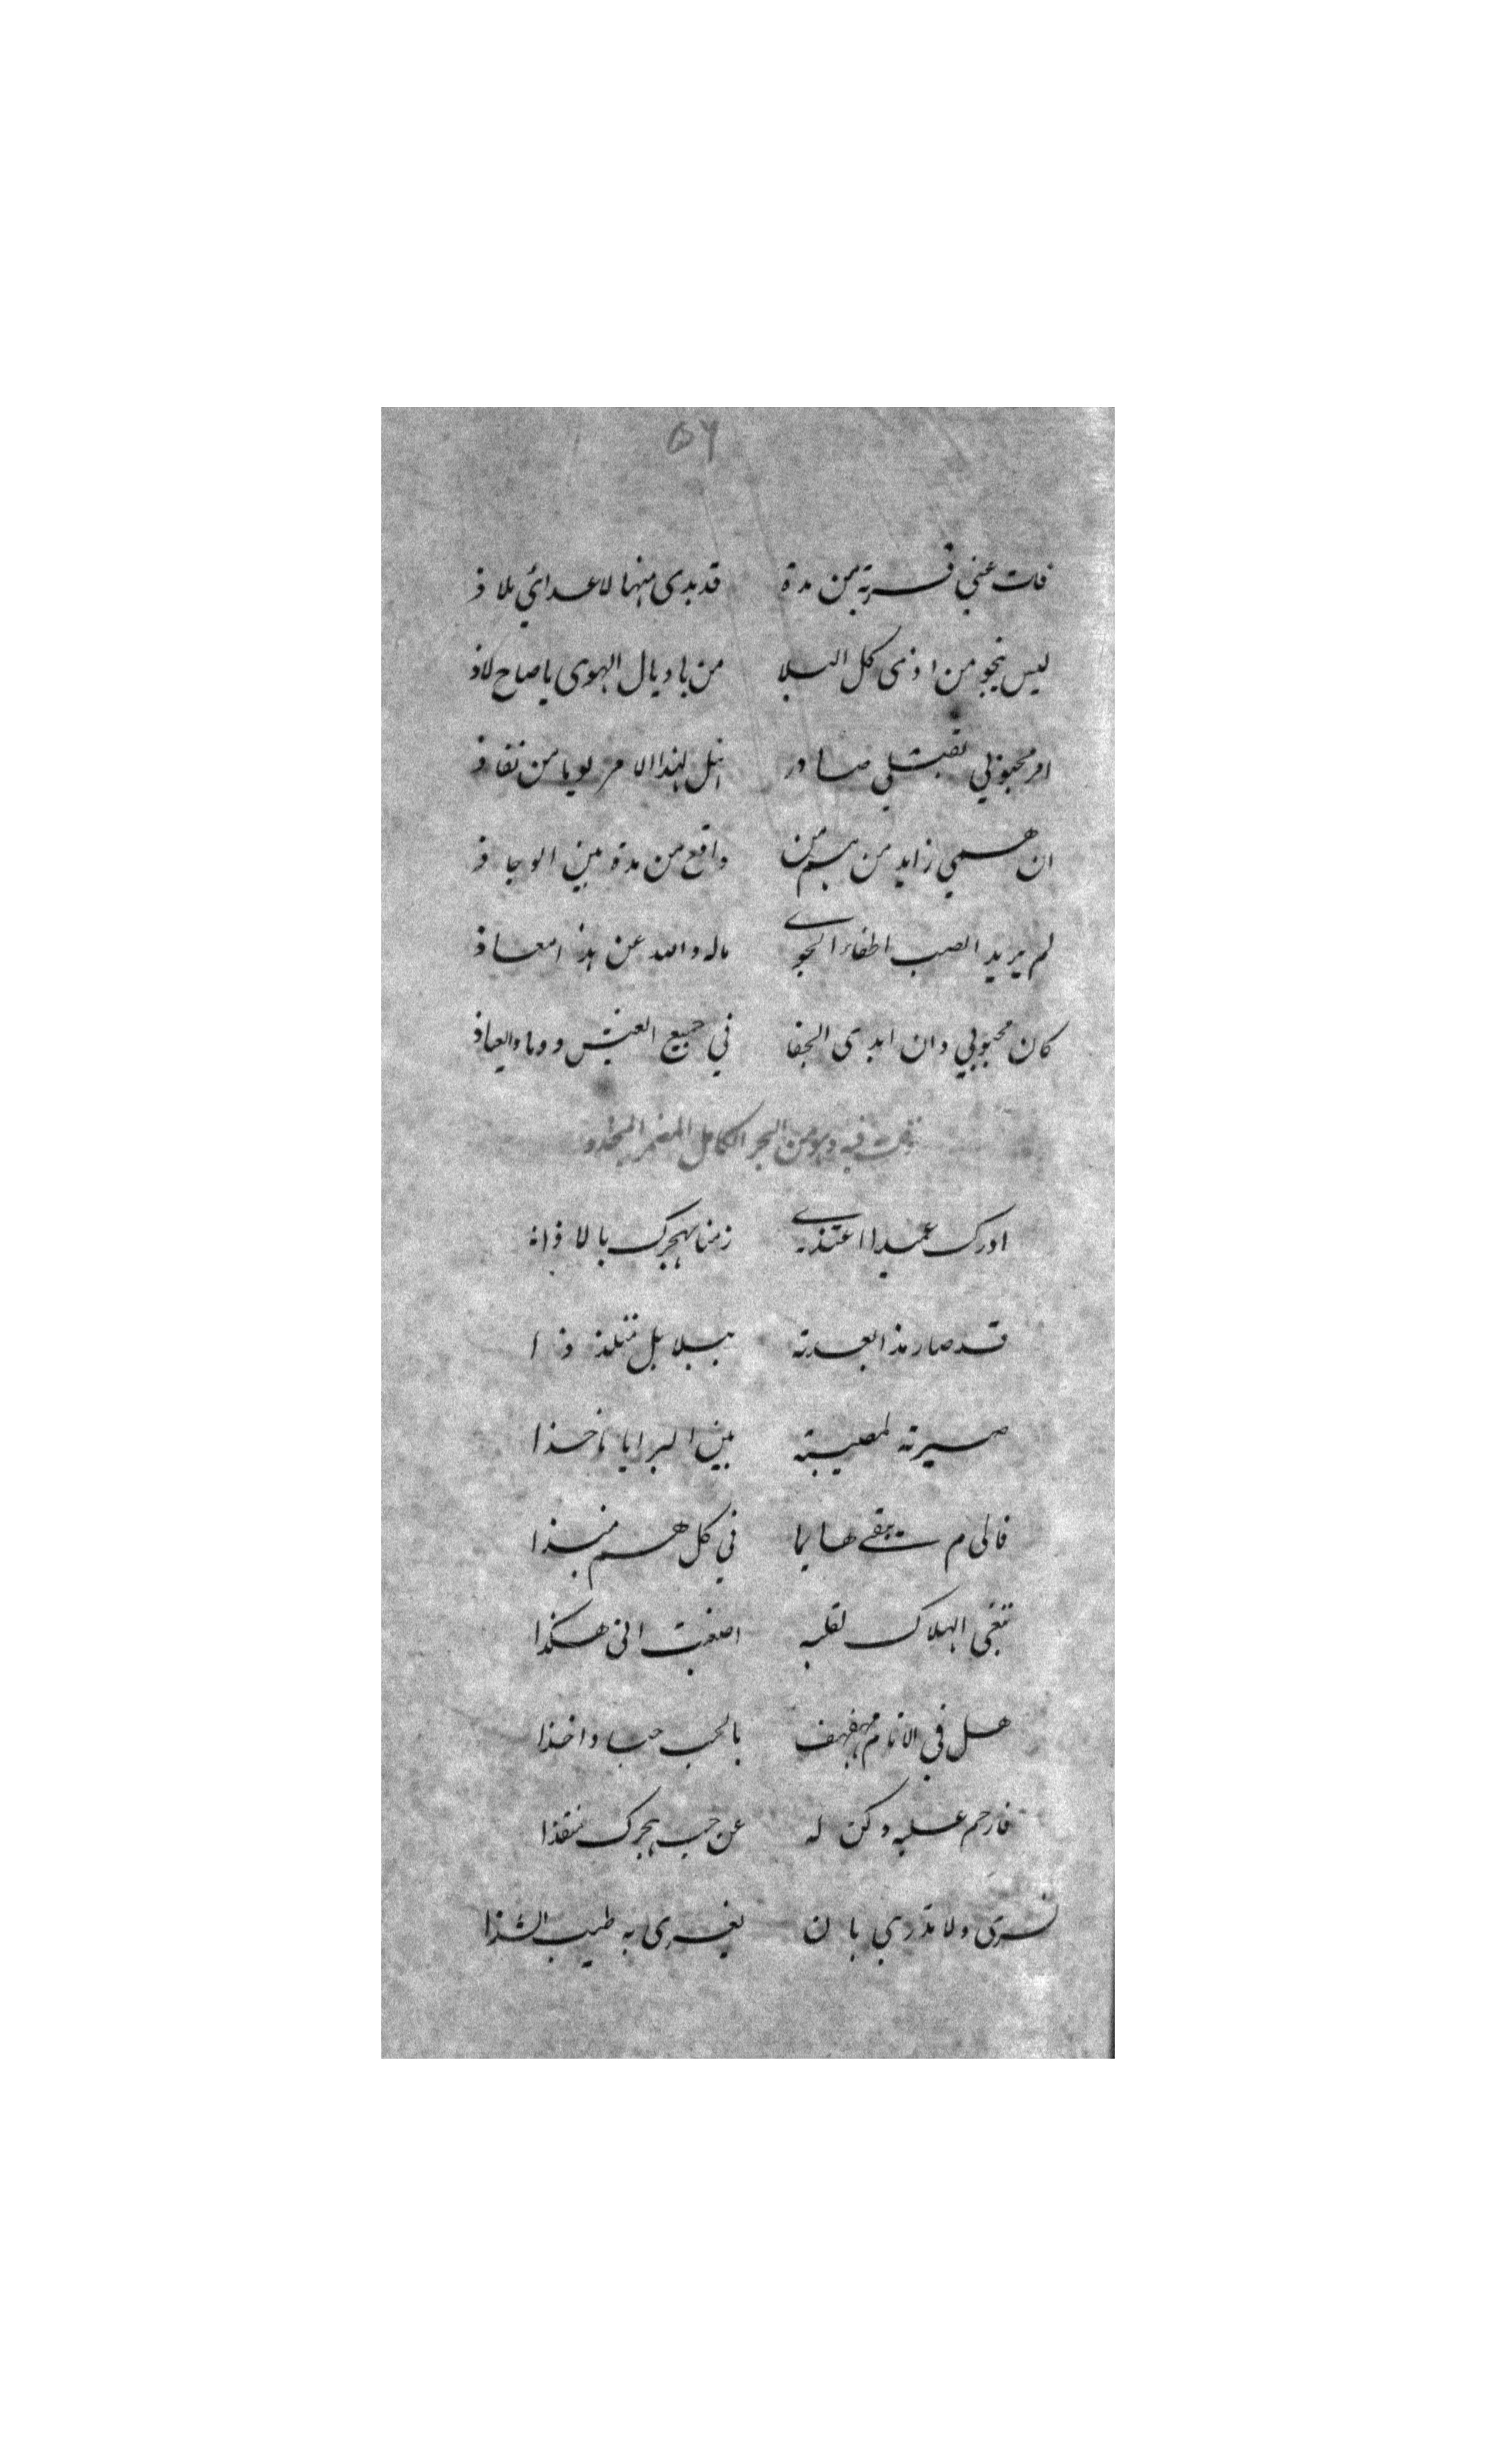 ٥٦
فات عني قربة من مدة قد بدى منها لاعدائي ملاذ
ليس ينجو من اذى كل البلا من باذيال الهوى يا صاح لاذ
امر محبوبي بقتلي صادر هل لهذا الامر يا من نفاذ
ان همي زايد من هم من واقع من مدة بين الوجاذ
لم يريد الصب اطفاء الجوى ماله والله عن هذا معاذ
كان محبوبي وان ابدى الجفا في جميع العيش دوما والعياذ
فيه وهو من البحر الكامل
ادرك عميدا اغتذى زمنا بهجرك بالاذا
قد صار مذ ابعدته ببلابل متلذذا
صيرته لمصيبته بين البرايا ماخذا
فالى م يبقى هايما في كل هم منبذا
تبغي الهلاك لقلبه اضعت انى هكذا
هل في الانام مهفهف بالحب صبا واخذا
فارحم عليه وكن له عن حب هجرك منقذا
تسرى ولا تدري بان يغرى به طيب الشذا